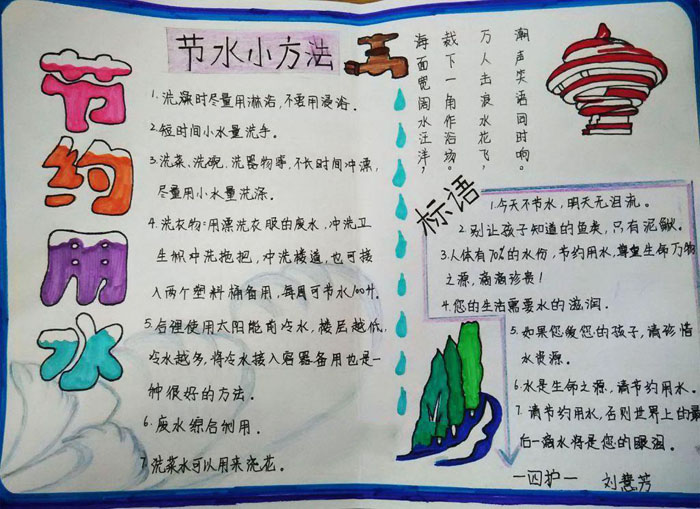 节
约
用
水
节水小方法
1. 洗澡时尽量用淋浴，不要用浸浴。
2. 短时间小水量洗手。
3. 洗菜、洗碗、洗器物等，不长时间冲漂，
尽量用小水量洗涤。
4. 洗衣物：用漂洗衣服的废水，冲洗卫
生帜冲洗拖把，冲洗楼道，也可接
入两个塑料桶备用，每周可节水100升。
5. 合理使用太阳能前冷水，楼层越低，
冷水越多，将冷水接入容器备用也是一
种很好的方法。
6. 废水综合利用。
7. 洗菜水可以用来浇花。
潮声笑语同时响。
万人击浪水花飞，
裁下一角作浴场。
海面宽阔水汪洋，
标语
1. 今天不节水，明天无泪流。
2. 别让孩子知道的鱼类，只有泥鳅。
3. 人体有70%的水份，节约用水，尊重生命万物
之源，滴滴珍贵！
4. 您的生活需要水的滋润。
5. 如果您爱您的孩子，请珍惜
水资源。
6. 水是生命之源，请节约用水。
7. 请节约用水，否则世界上的最
后一滴水将是您的眼泪。
一四护一 刘慧芳